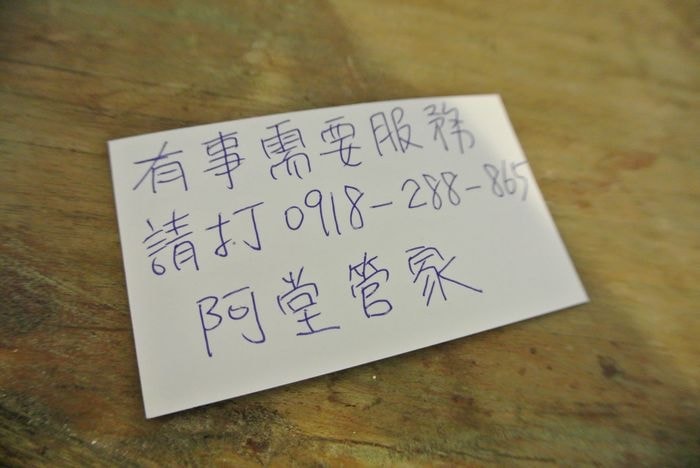 有事需要服務
請打0918-288-865
阿堂管家